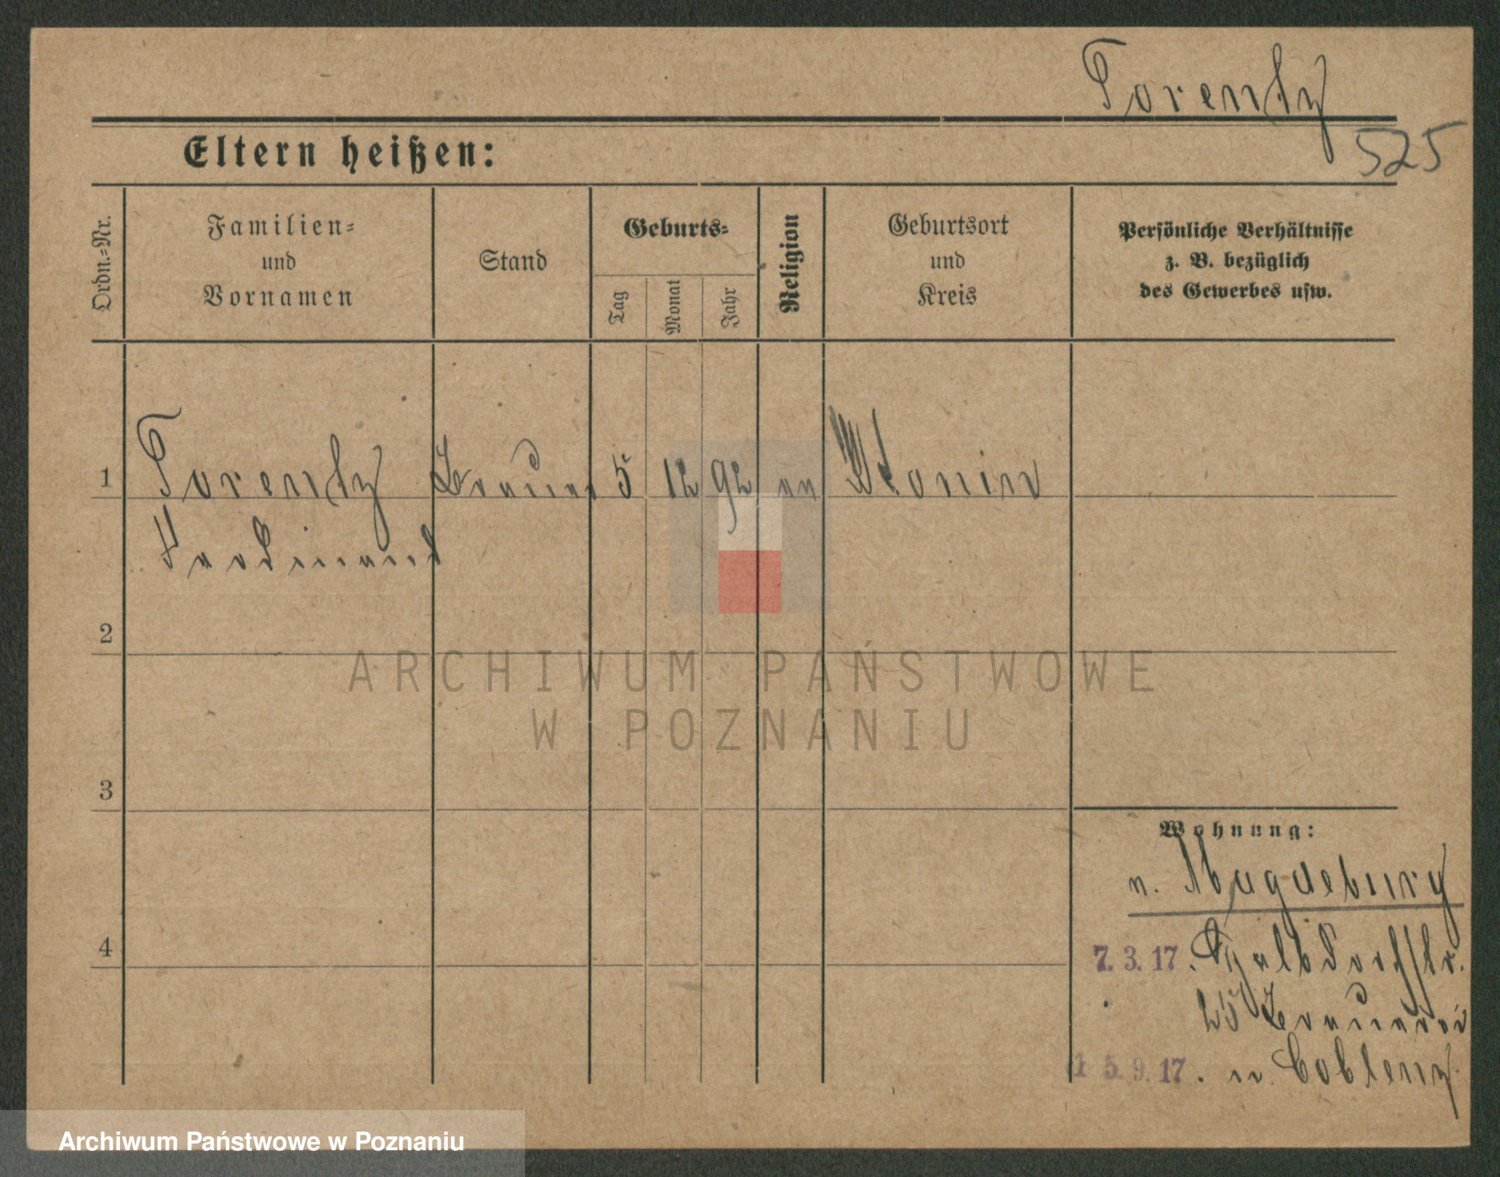 Torentz
525
Eltern heißen:
Ordn.-Nr.
Familien-
und
Vornamen
Stand
Geburts-
Tag
Monat
Jahr
Religion
Geburtsort
und
Kreis
Persönliche Verhältnisse
z. B. bezüglich
des Gewerbes usw.
1 Torentz Brauer 5 12 92 Konin
Ferdinand
2
ARCHIWUM PAŃSTWOWE
W POZNANIU
3
Wohnung:
n. Magdeburg
4
7.3.17.
25 Brauerei
15.9.17. n. Coblenz
Archiwum Państwowe w Poznaniu